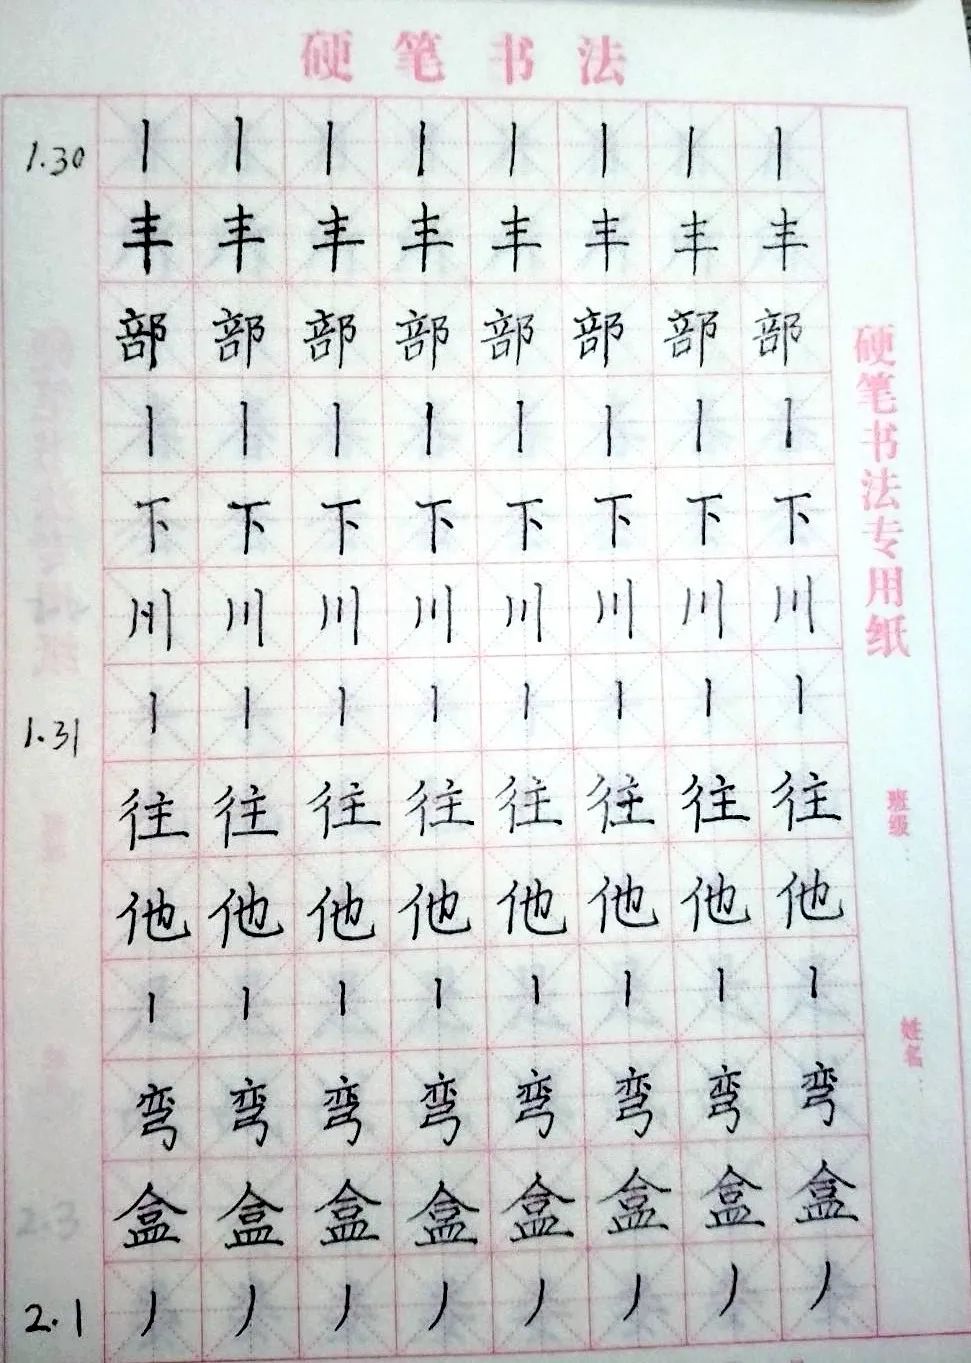 硬笔书法
1.30 丨 丨 丨 丨 丨 丨 丨 丨
丰 丰 丰 丰 丰 丰 丰 丰
部 部 部 部 部 部 部 部
丨 丨 丨 丨 丨 丨 丨 丨
下 下 下 下 下 下 下 下
川 川 川 川 川 川 川 川
丨 丨 丨 丨 丨 丨 丨 丨
1.31
往 往 往 往 往 往 往 往
他 他 他 他 他 他 他 他
丨 丨 丨 丨 丨 丨 丨 丨
弯 弯 弯 弯 弯 弯 弯 弯
盒 盒 盒 盒 盒 盒 盒 盒
2.1 丿 丿 丿 丿 丿 丿 丿 丿
硬笔书法专用纸
班级
姓名
2.3